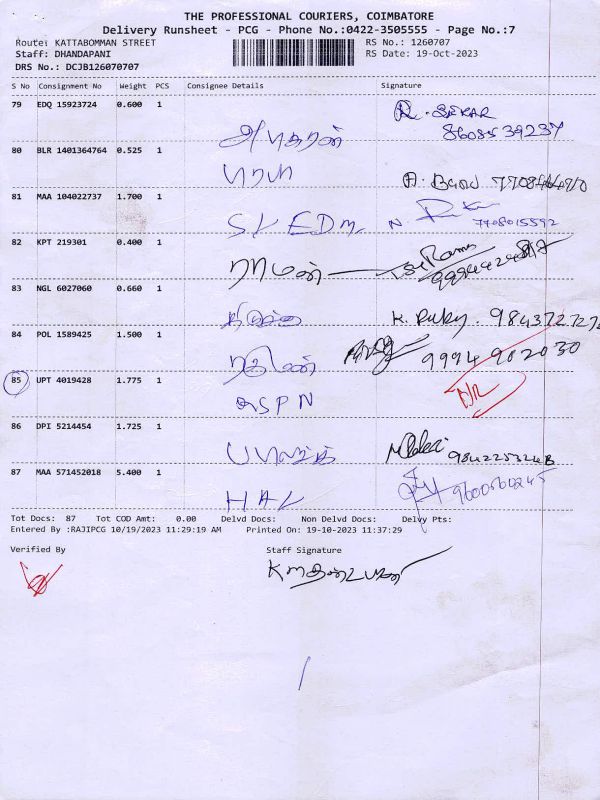 THE PROFESSIONAL COURIERS, COIMBATORE
Delivery Runsheet - PCG - Phone No.:0422-3505555 - Page No.:7
Route: KATTABOMMAN STREET RS No.: 1260707
Staff: DHANDAPANI RS Date: 19-Oct-2023
DRS No.: DCJB126070707
S No Consignment No Weight PCS Consignee Details Signature
79 EDQ 15923724 0.600 1 R. SEKAR
8608539237
80 BLR 1401364764 0.525 1
81 MAA 104022737 1.700 1 7708015592
82 KPT 219301 0.400 1 ராமன்
83 NGL 6027060 0.660 1 K. Ruby. 9843727272
84 POL 1589425 1.500 1 9994902030
85 UPT 4019428 1.775 1 ASPN
86 DPI 5214454 1.725 1
87 MAA 571452018 5.400 1 HAL 9600560245
Tot Docs: 87 Tot COD Amt: 0.00 Delvd Docs: Non Delvd Docs: Delvy Pts:
Entered By :RAJIPCG 10/19/2023 11:29:19 AM Printed On: 19-10-2023 11:37:29
Verified By Staff Signature